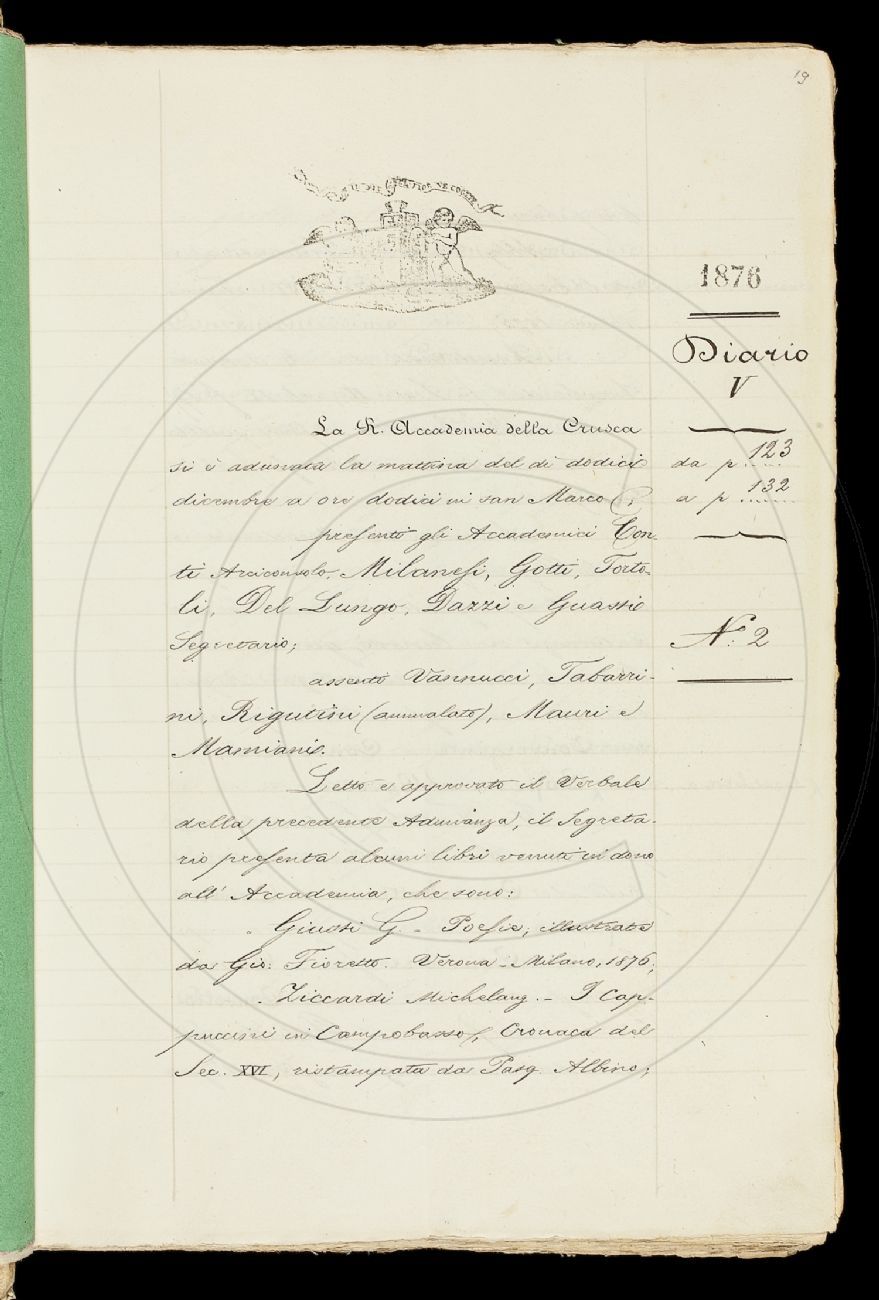 19
IL PIÙ BEL FIOR NE COGLIE
1876
Diario
V
da p. 123
a p. 132
N.º 2
La R. Accademia della Crusca
si è adunata la mattina del dì dodici
dicembre a ore dodici in san Marco;
presenti gli Accademici Con-
ti Arciconsolo, Milanesi, Gotti, Torto-
li, Del Lungo, Dazzi e Guasti
Segretario;
assenti Vannucci, Tabarri-
ni, Rigutini (ammalato), Mauri e
Mamiani.
Letto e approvato il Verbale
della precedente Adunanza, il Segreta-
rio presenta alcuni libri venuti in dono
all' Accademia, che sono:
Giusti G. - Poesie, illustrate
da Gio: Fioretto. Verona-Milano, 1876;
Ziccardi Michelang. - I Cap-
puccini in Campobasso, Cronaca del
Sec. XVI, ristampata da Pasq. Albino;